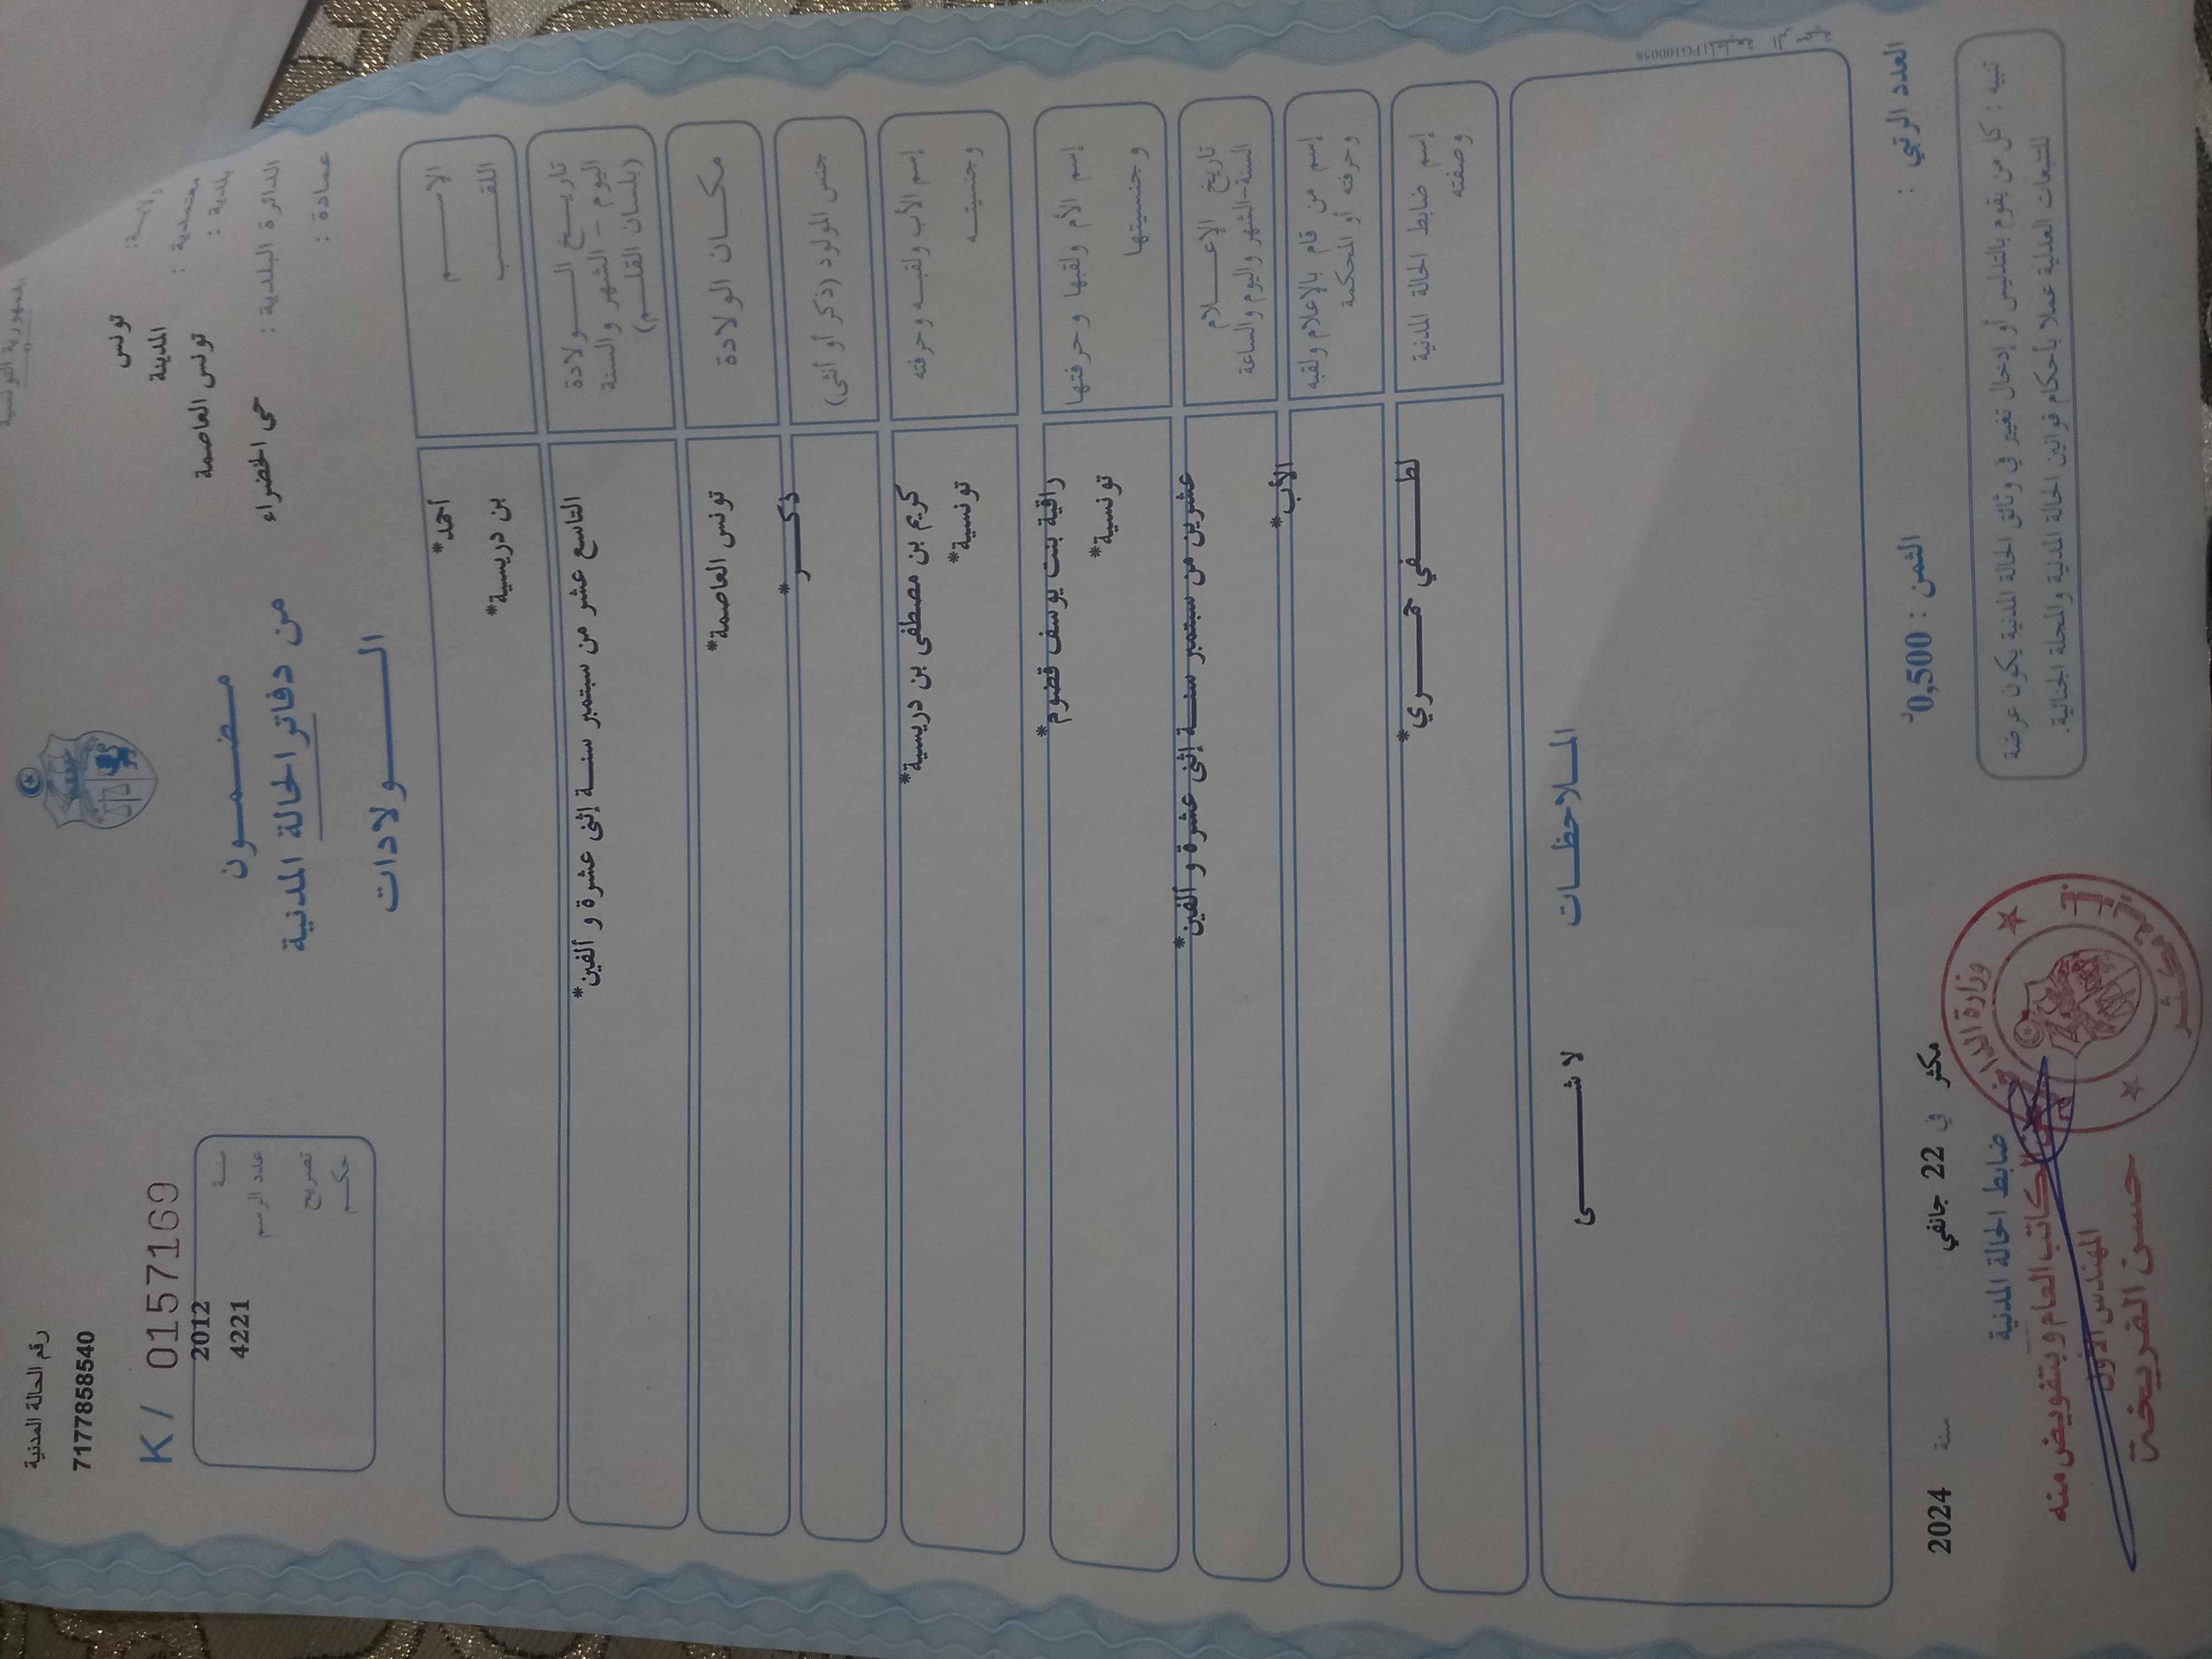 الجمهورية التونسية
رقم الحالة المدنية
7177858540
K / 0157169
ولاية : تونس
معتمدية : المدينة
بلدية : تونس العاصمة
الدائرة البلدية : حي الخضراء
عمادة :
سنة 2012
عدد الرسم 4221
تصريح
حكم
مضمون
من دفاتر الحالة المدنية
الولادات
الاسم أحمد*
اللقب بن دريسية*
تاريخ الولادة
اليوم - الشهر والسنة
(بلسان القلم)
التاسع عشر من سبتمبر سنة إثنى عشرة و ألفين*
مكان الولادة تونس العاصمة*
جنس المولود (ذكر أو أنثى) ذكر*
إسم الأب ولقبه وحرفته كريم بن مصطفى بن دريسية*
وجنسيته تونسية*
إسم الأم ولقبها وحرفتها راقية بنت يوسف قضوم*
وجنسيتها تونسية*
تاريخ الإعلام
السنة-الشهر واليوم والساعة
عشرين من سبتمبر سنة إثنى عشرة و ألفين*
إسم من قام بالإعلام ولقبه
وحرفته أو المحكمة
الأب*
إسم ضابط الحالة المدنية
وصفته
لطفي حمري*
الملاحظات
لا شيء
FG100058
العدد الرتبي :
الثمن : 0,500د
مكثر في 22 جانفي سنة 2024
ضابط الحالة المدنية
تنبيه : كل من يقوم بالتدليس أو إدخال تغيير في وثائق الحالة المدنية يكون عرضة
للتتبعات العدلية عملا بأحكام قوانين الحالة المدنية والمجلة الجنائية.
وزارة الداخلية
مكثر
الكاتب العام و بتفويض منه
المهندس الأول
حسن الفريخة